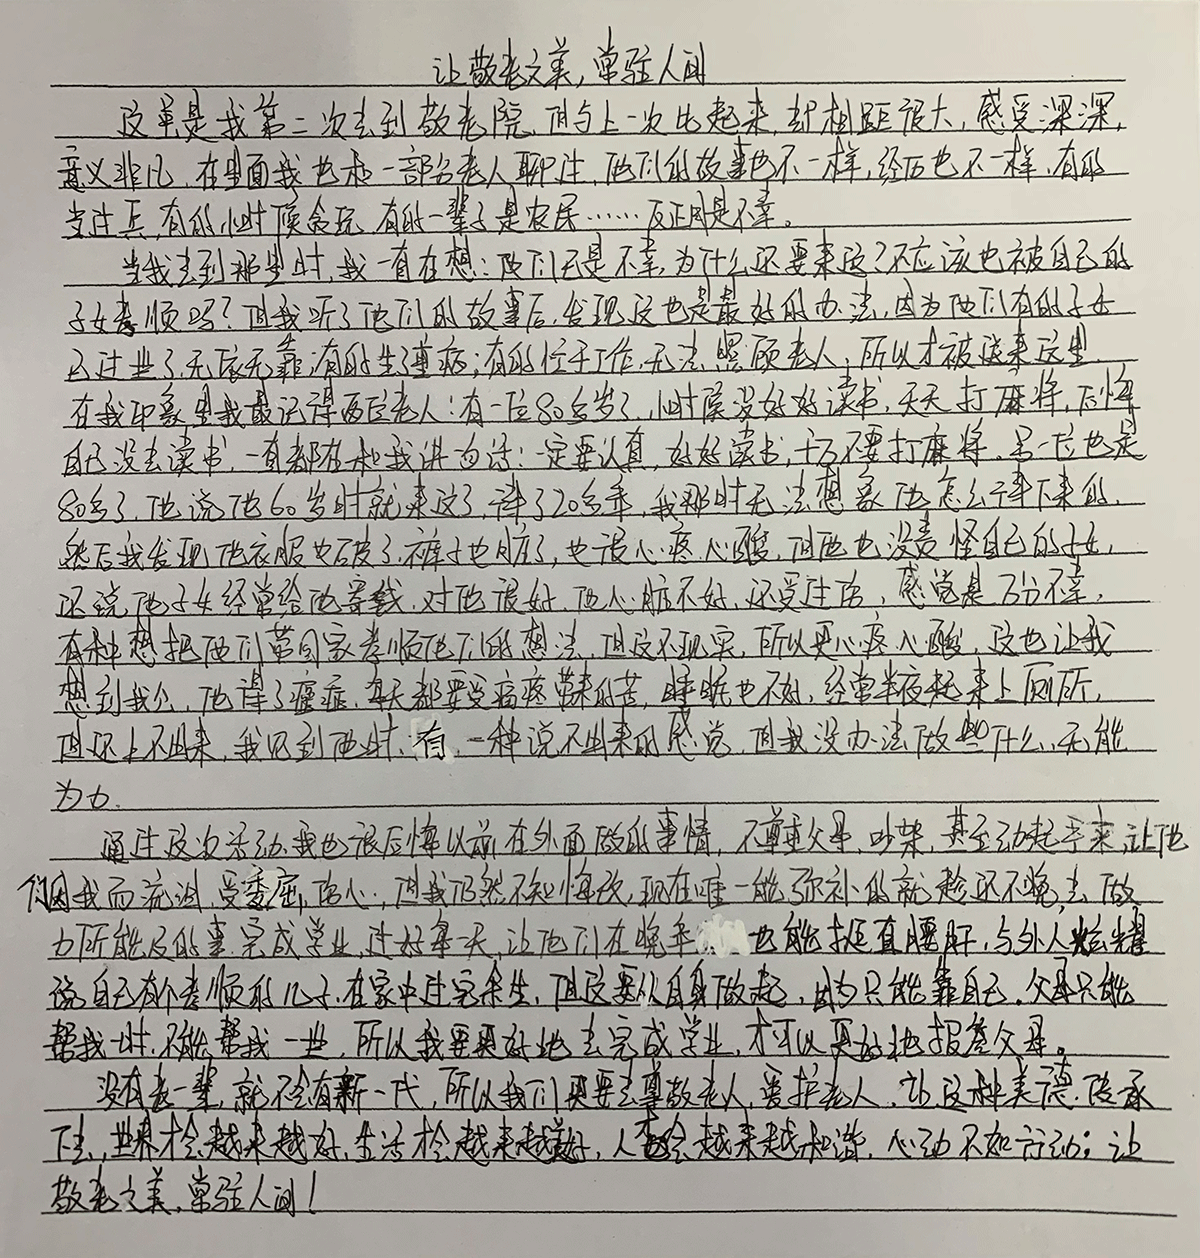 让敬老之美,常驻人间
这算是我第二次去到敬老院,但与上一次比起来,却相距很大,感受深深,
意义非凡,在里面我也和一部分老人聊过,他们的故事也不一样,经历也不一样,有的
当过兵,有的小时候贪玩,有的一辈子是农民……反正同是不幸。
当我去到那里时,我一直在想:他们既是不幸,为什么还要来这?不应该也被自己的
子女孝顺吗?但我听了他们的故事后,发现这也是最好的办法,因为他们有的子女
已过世了,无依无靠;有的生了重病;有的忙于工作,无法照顾老人,所以才被送来这里.
在我印象里我最记得两位老人:有一位80多岁了,小时候没好好读书,天天打麻将,后悔
自己没去读书,一直都在和我讲句话:一定要认真,好好读书,千万不要打麻将.另一位也是
80多了,他说他60岁时就来这了,待了20多年,我那时无法想象他怎么待下来的,
然后我发现他衣服也破了,裤子也脏了,也很心疼,心酸,但他也没责怪自己的子女,
还说他子女经常给他寄钱,对他很好,他心脏不好,还受过伤,感觉是万分不幸,
有种想把他们带回家孝顺他们的想法,但这不现实,所以更心疼心酸,这也让我
想到我公,他得了癌症,每天都要受病疼带来的苦,睡眠也不好,经常半夜起来上厕所,
但还上不出来,我见到他时,有一种说不出来的感觉,但我没办法做些什么,无能
为力.
通过这次活动,我也很后悔以前在外面做的事情,不尊重父母,吵架,甚至动起手来,让他
们因我而流泪,受委屈,伤心,但我仍然不知悔改,现在唯一能弥补的就趁还不晚,去做
力所能及的事,完成学业,过好每一天,让他们在晚年也能挺直腰杆,与外人炫耀
说自己有个孝顺的儿子,在家中过完余生,但这要从自身做起,因为只能靠自己,父母只能
帮我一时,不能帮我一世,所以我要更好地去完成学业,才可以更好地报答父母。
没有老一辈,就不会有新一代,所以我们更要去尊敬老人,爱护老人,让这种美德传承
下去,世界才会越来越好,生活才会越来越美好,人才会越来越和谐,心动不如行动;让
敬老之美,常驻人间!